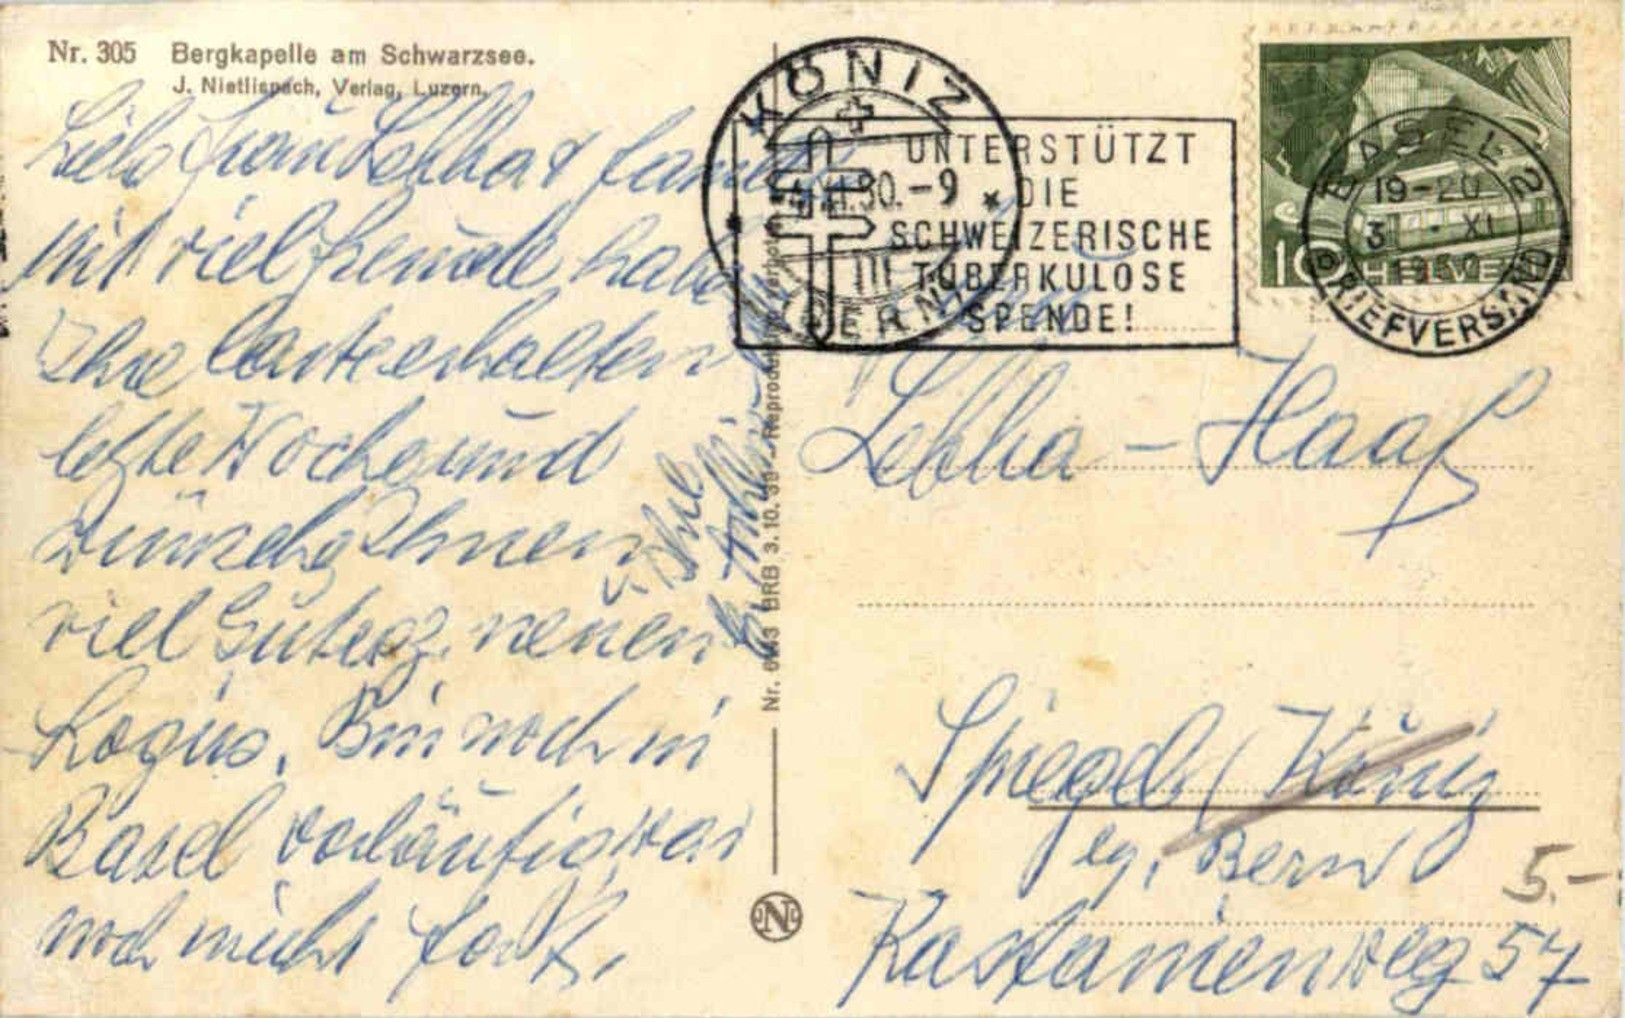 Nr. 305 Bergkapelle am Schwarzsee.
J. Nietlispach, Verlag, Luzern.
Liebe Frau Lebha & Familie
Mit viel Freude habe
Ihre Carte erhalten
letzte Woche und
Wünsche Ihnen
viel Gutes z. neuen
Logius. Bin noch in
Basel vorläufig war
noch nicht fort.
Nr. 6143 BRB 3.10.39 - Reproduktion verboten
KÖNIZ
.50.-9
(BERN)
UNTERSTÜTZT
DIE
SCHWEIZERISCHE
TUBERKULOSE
SPENDE!
10 HELVETIA
BASEL 2
19-20
3 · XI
1950
BRIEFVERSAND
Lebha - Haaf
Spiegel (Köniz
bg. Bern)
Kastanienweg 57
5.-
N